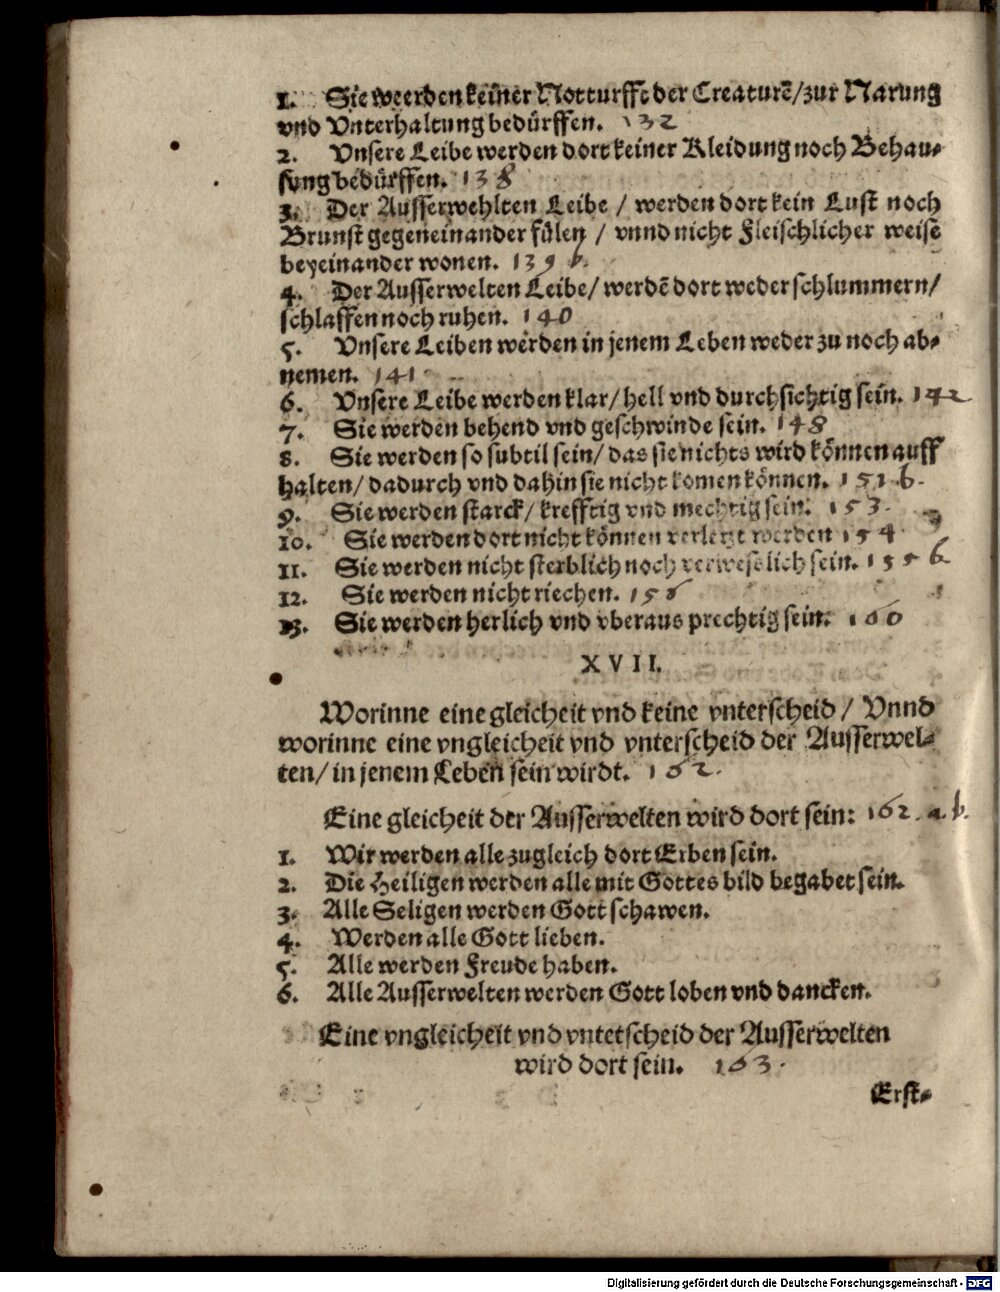 1. Sie weerden keiner Notturfft der Creaturē/zur Narung
vnd Vnterhaltung bedürffen. 132
2. Vnsere Leibe werden dort keiner Kleidung noch Behau-
sung bedürffen. 138
3. Der Ausserwehlten Leibe / werden dort kein Lust noch
Brunst gegeneinander fülen / vnnd nicht Fleischlicher weise
beyeinander wonen. 139 b.
4. Der Ausserwelten Leibe/ werdē dort weder schlummern/
schlaffen noch ruhen. 140
5. Vnsere Leiben werden in jenem Leben weder zu noch ab-
nemen. 141
6. Vnsere Leibe werden klar/ hell vnd durchsichtig sein. 142
7. Sie werden behend vnd geschwinde sein. 148
8. Sie werden so subtil sein/ das sie nichts wird können auff
halten/ dadurch vnd dahin sie nicht komen können. 151 b.
9. Sie werden starck/ krefftig vnd mechtig sein. 153.
10. Sie werden dort nicht können verletzt werden 154
11. Sie werden nicht sterblich noch verweslich sein. 155 b
12. Sie werden nicht riechen. 158
13. Sie werden herlich vnd vberaus prechtig sein. 160
XVII.
Worinne eine gleicheit vnd keine vnterscheid / Vnnd
worinne eine vngleicheit vnd vnterscheid der Ausserwel-
ten/ in jenem Leben sein wirdt. 162.
Eine gleicheit der Ausserwelten wird dort sein: 162. a. b.
1. Wir werden alle zugleich dort Erben sein.
2. Die Heiligen werden alle mit Gottes bild begabet sein.
3. Alle Seligen werden Gott schawen.
4. Werden alle Gott lieben.
5. Alle werden Freude haben.
6. Alle Ausserwelten werden Gott loben vnd dancken.
Eine vngleicheit vnd vntetscheid der Ausserwelten
wird dort sein. 163.
Erst-
Digitalisierung gefördert durch die Deutsche Forschungsgemeinschaft - DFG